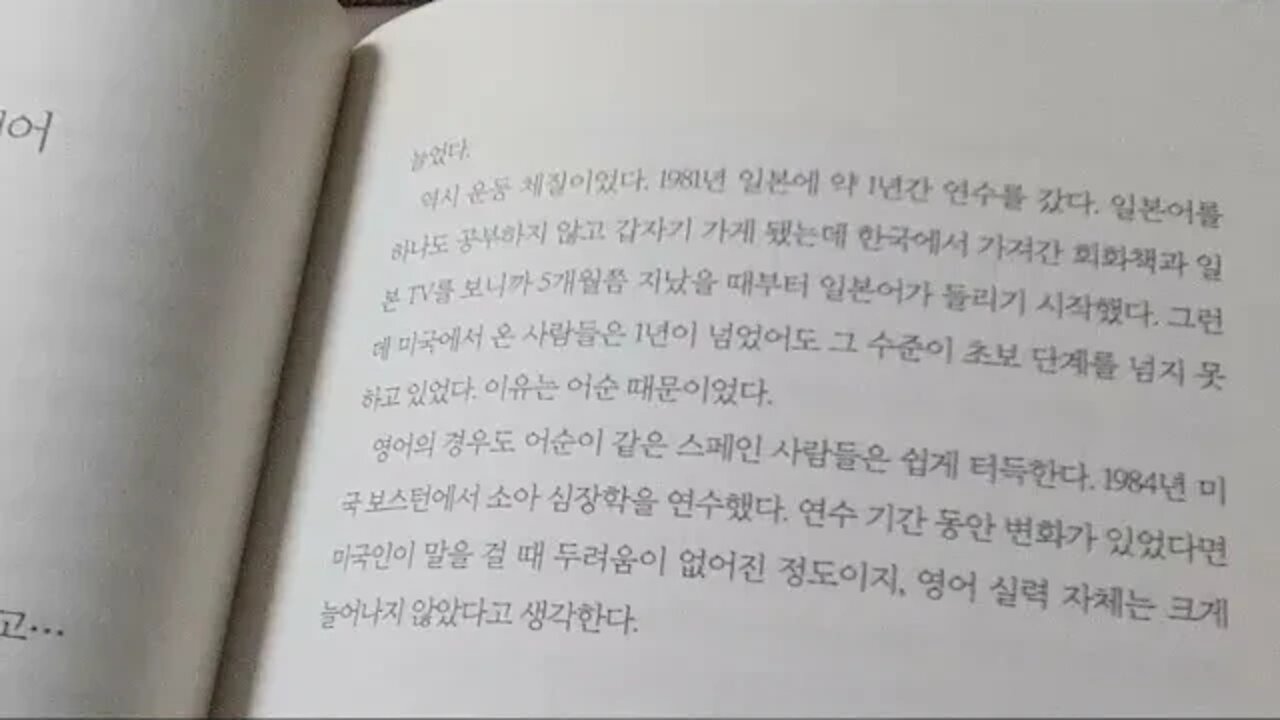 어
고…
늘었다.
역시 운동 체질이었다. 1981년 일본에 약 1년간 연수를 갔다. 일본어를
하나도 공부하지 않고 갑자기 가게 됐는데 한국에서 가져간 회화책과 일
본 TV를 보니까 5개월쯤 지났을 때부터 일본어가 들리기 시작했다. 그런
데 미국에서 온 사람들은 1년이 넘었어도 그 수준이 초보 단계를 넘지 못
하고 있었다. 이유는 어순 때문이었다.
영어의 경우도 어순이 같은 스페인 사람들은 쉽게 터득한다. 1984년 미
국 보스턴에서 소아 심장학을 연수했다. 연수 기간 동안 변화가 있었다면
미국인이 말을 걸 때 두려움이 없어진 정도이지, 영어 실력 자체는 크게
늘어나지 않았다고 생각한다.